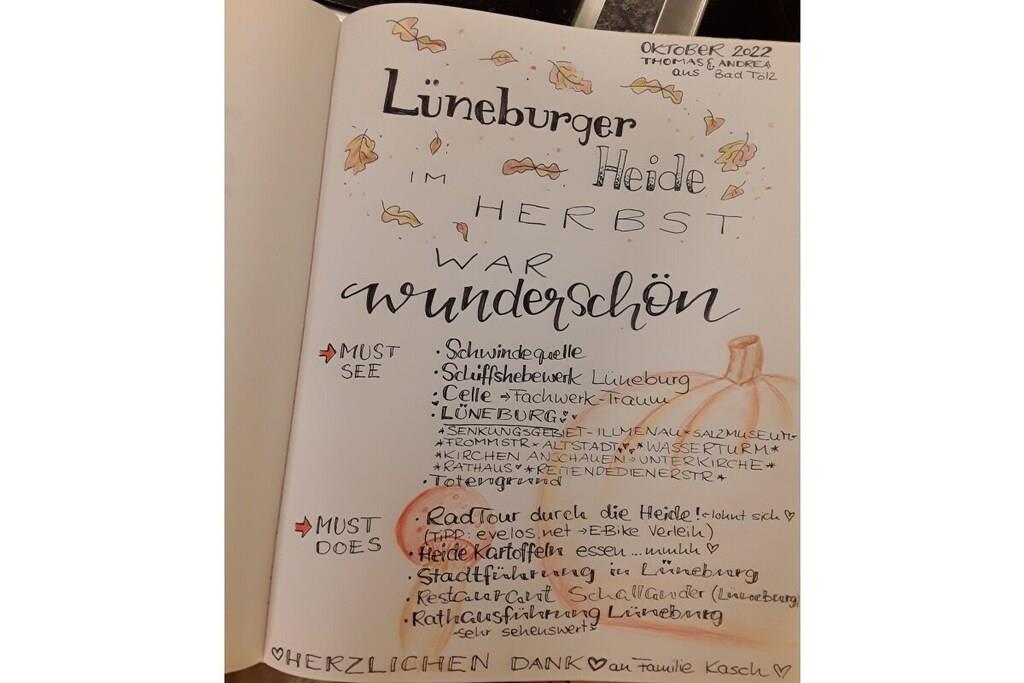 OKTOBER 2022
THOMAS & ANDREA
aus Bad Tölz
Lüneburger
Heide
IM
HERBST
WAR
wunderschön
➔ MUST SEE
· Schwindequelle
· Schiffshebewerk Lüneburg
· Celle → Fachwerk-Traum
· LÜNEBURG: ♥
* SENKUNGSGEBIET - ILLMENAU * SALZMUSEUM -
* FROMMSTR * ALTSTADT ♥ * WASSERTURM *
* KIRCHEN ANSCHAUEN ° UNTERKIRCHE *
* RATHAUS ♥ * REITENDEDIENERSTR *
· Totengrund
➔ MUST DOES
· RadTour durch die Heide! - lohnt sich ♡
(TIPP: evelos.net → E-Bike Verleih)
· Heide Kartoffeln essen ... mmhh ♡
· Stadtführung in Lüneburg
· Restaurant Schallander (Lüneburg)
· Rathausführung Lüneburg
- sehr sehenswert -
♡ HERZLICHEN DANK ♡ an Familie Kasch ♡